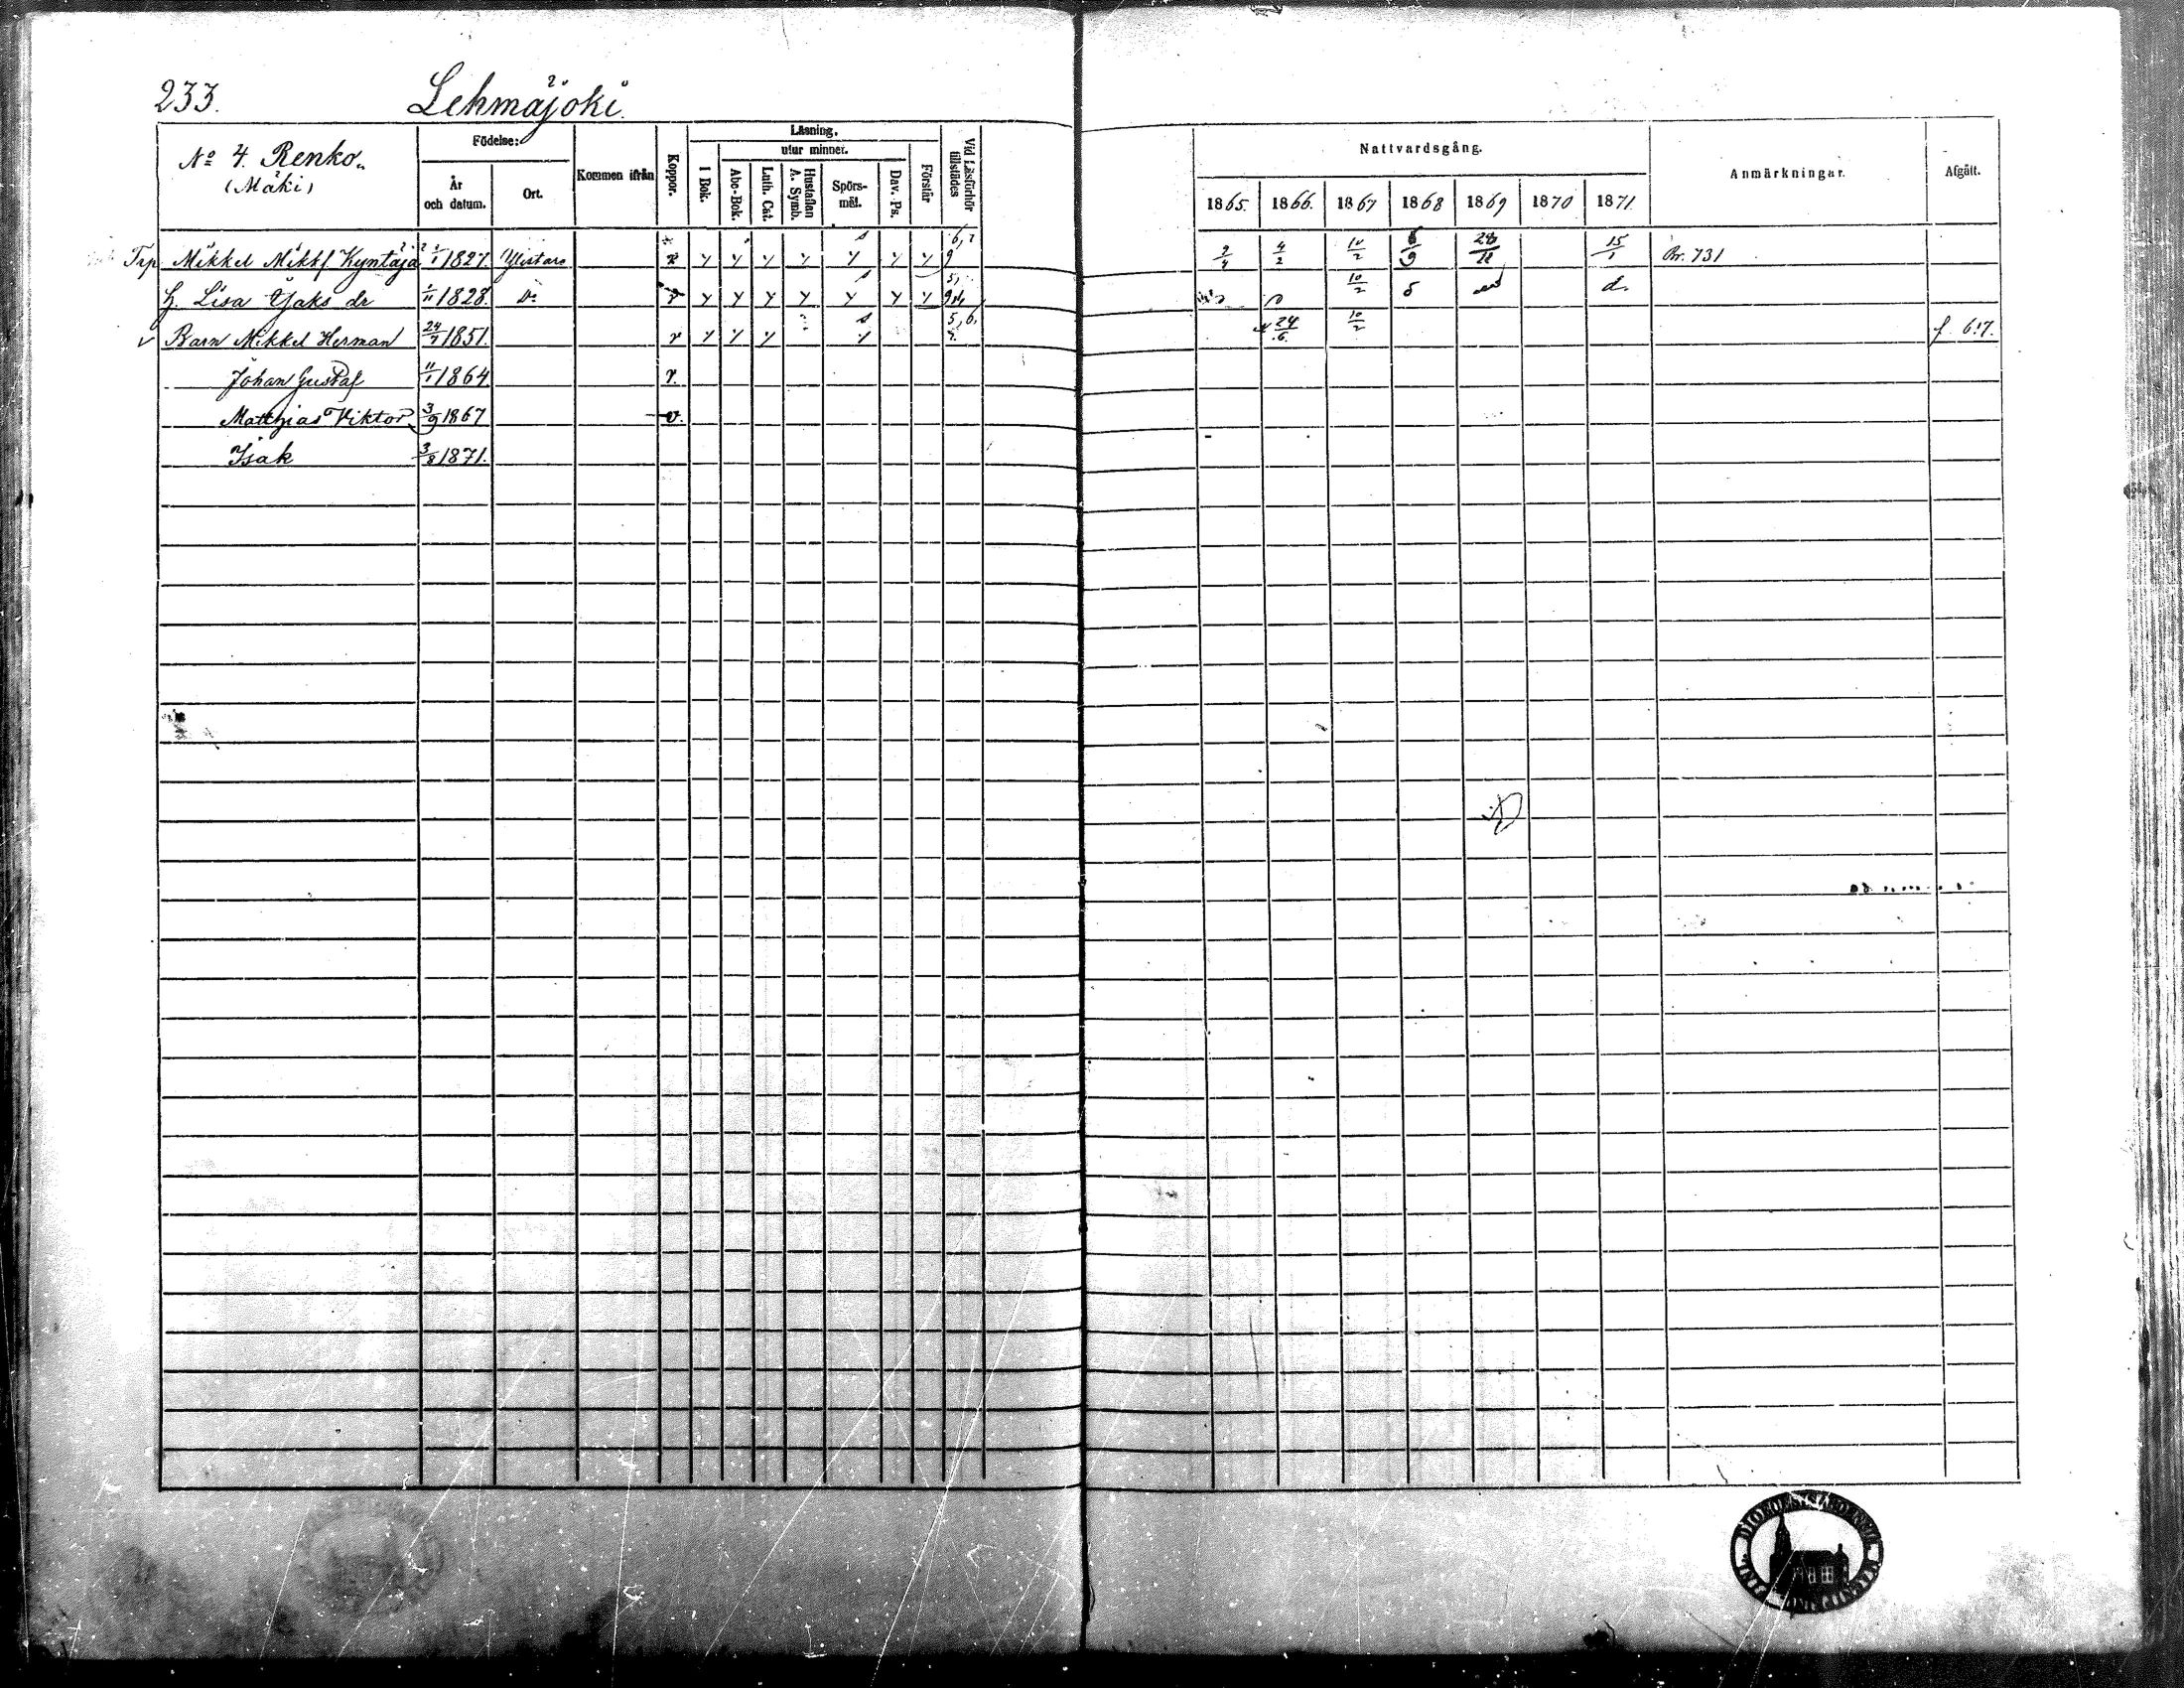 233. Lehmäjoki.
No 4. Renko.
(Mäki)
Födelse:
År och datum.
Ort.
Kommen ifrån
Koppor.
Läsning.
utur minnet.
I Bok.
Abc-Bok.
Luth. Cat.
Hustaflan A. Symb.
Spörs-mål.
Dav. Ps.
Förstår
Vid Läsförhör tillstädes
Nattvardsgång.
1865. 1866. 1867 1868 1869 1870 1871.
Anmärkningar.
Afgått.
Mikkel Mikks Kyntäjä 1/1 1827. Ylistaro v y y y y y y y 9 2/4 4/2 10/2 15/1 Br. 731
H. Lisa Jaks dr 1/11 1828. Do v y y y y y y y 10/2 d.
v Barn Mikkel Herman 24/7 1851. v y y y y 5, 6, 7. 24/6. 10/2 f 617.
Johan Gustaf 11/1 1864 v.
Matthias Viktor 3/9 1867 v.
Isak 3/8 1871.